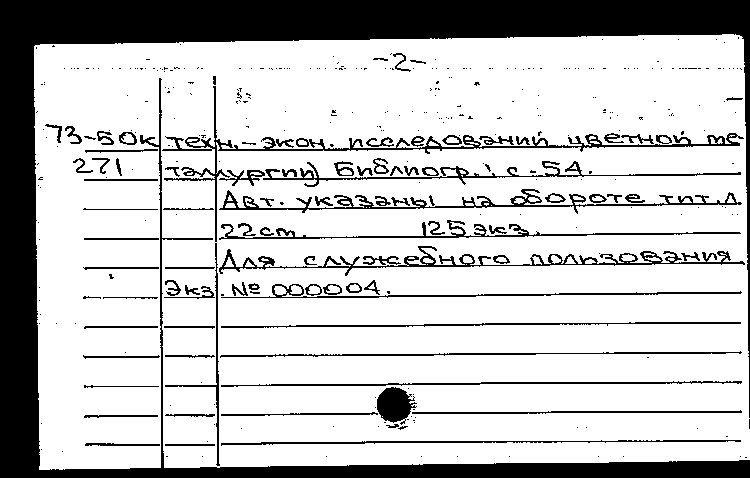 -2-
73-50к техн.-экон. исследований цветной ме-
271 таллургии) Библиогр.: с.54.
Авт. указаны на обороте тит.л.
22см. 125экз.
Для служебного пользования
Экз. № 000004.